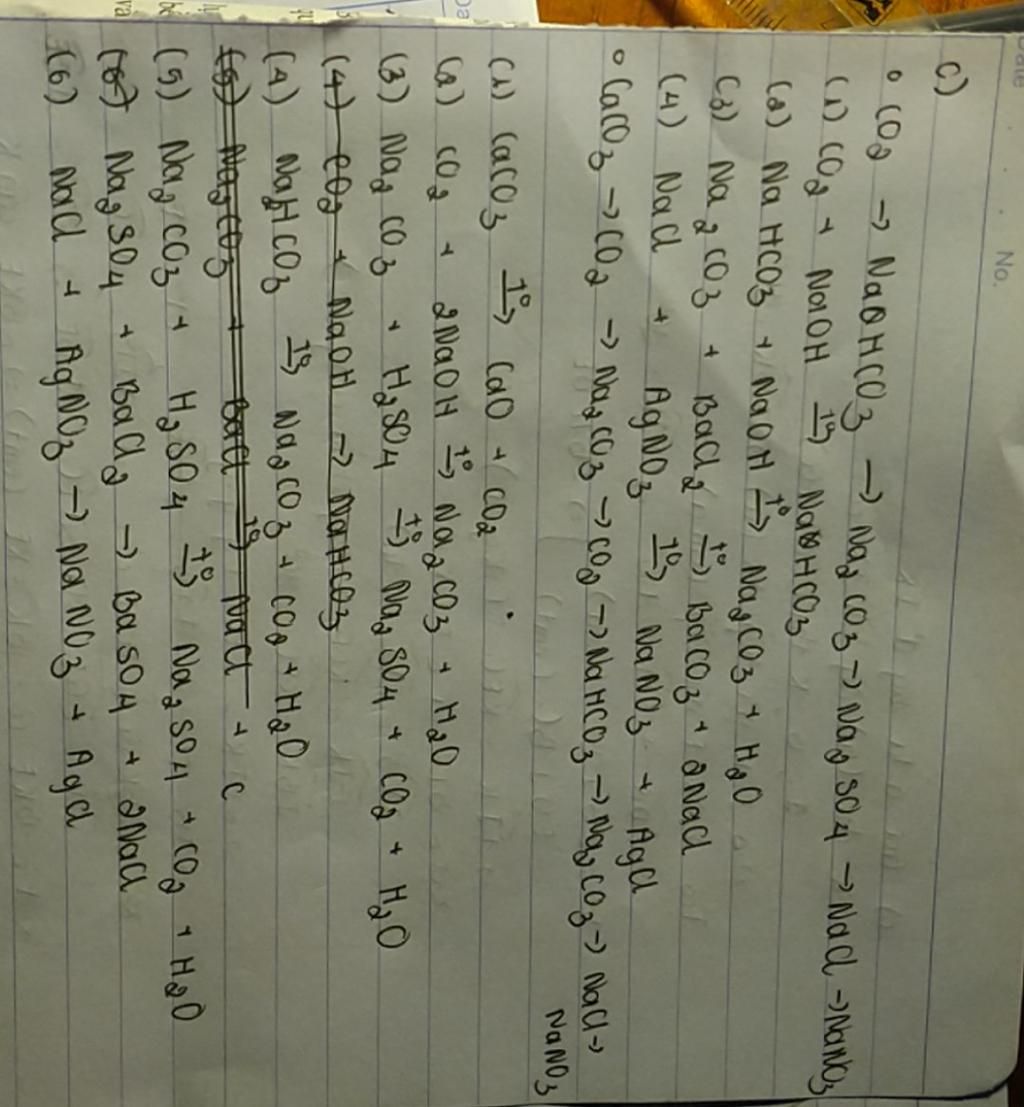 Date
No.
C)
• CO2 → NaHCO3 → Na2CO3 → Na2SO4 → NaCl → NaNO3
(1) CO2 + NaOH t°→ NaHCO3
(2) NaHCO3 + NaOH t°→ Na2CO3 + H2O
(3) Na2CO3 + BaCl2 t°→ BaCO3 + 2NaCl
(4) NaCl + AgNO3 t°→ NaNO3 + AgCl
• CaCO3 → CO2 → Na2CO3 → CO2 → NaHCO3 → Na2CO3 → NaCl →
NaNO3
(1) CaCO3 t°→ CaO + CO2
(2) CO2 + 2NaOH t°→ Na2CO3 + H2O
(3) Na2CO3 + H2SO4 t°→ Na2SO4 + CO2 + H2O
(4) CO2 + NaOH → NaHCO3
(4) NaHCO3 t°→ Na2CO3 + CO2 + H2O
(5) Na2CO3 + BaCl t°→ NaCl + C
(5) Na2CO3 + H2SO4 t°→ Na2SO4 + CO2 + H2O
(6) Na2SO4 + BaCl2 → BaSO4 + 2NaCl
(6) NaCl + AgNO3 → NaNO3 + AgCl